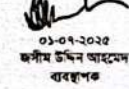 ০১-০৭-২০২৫
জসীম উদ্দিন আহমেদ
ব্যবস্থাপক